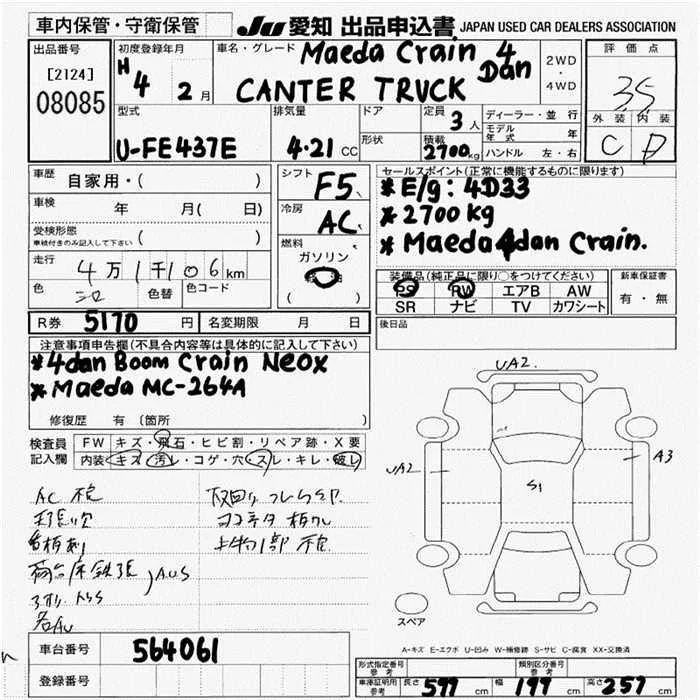 車内保管・守衛保管
JU 愛知 出品申込書 JAPAN USED CAR DEALERS ASSOCIATION
出品番号
[2124]
08085
初度登録年月
H4 2月
車名・グレード
Maeda Crain 4 Dan
CANTER TRUCK
2WD・4WD
評価点
3.5
外装 内装
C D
型式
U-FE437E
排気量
4.21 CC
ドア
形状
定員
3人
積載
2700kg
ディーラー・並行
モデル年式 年
ハンドル 左・右
車歴 自家用・( )
車検 年 月( 日)
受検形態
車検付きのみ記入して下さい ( )
走行 4万1千106km
色 色替 色コード
シフト F5
冷房 AC
燃料
ガソリン
( )
セールスポイント(正常に機能するものに限ります)
* E/g: 4D33
* 2700kg
* Maeda 4dan Crain.
装備品(純正品に限り○をつけてください)
PS PW エアB AW
SR ナビ TV カワシート
新車保証書
有・無
R券 5170 円 名変期限 月 日
後日品
注意事項申告欄(不具合内容等は具体的に記入して下さい)
* 4dan Boom Crain Neox
* Maeda MC-264A
修復歴 有 (箇所 )
検査員記入欄
FW キズ・飛石・ヒビ割・リペア跡・X要
内装 キズ・汚レ・コゲ・穴・スレ・キレ・破レ
UA2.
UA2
A3
S1
スペア
A=キズ E=エクボ U=凹み W=補修跡 S=サビ C=腐食 XX=交換済
車台番号 564061
登録番号
型式指定番号 参考
類別区分番号 参考
車庫証明用 参考 長さ 599 cm 幅 199 cm 高さ 257 cm